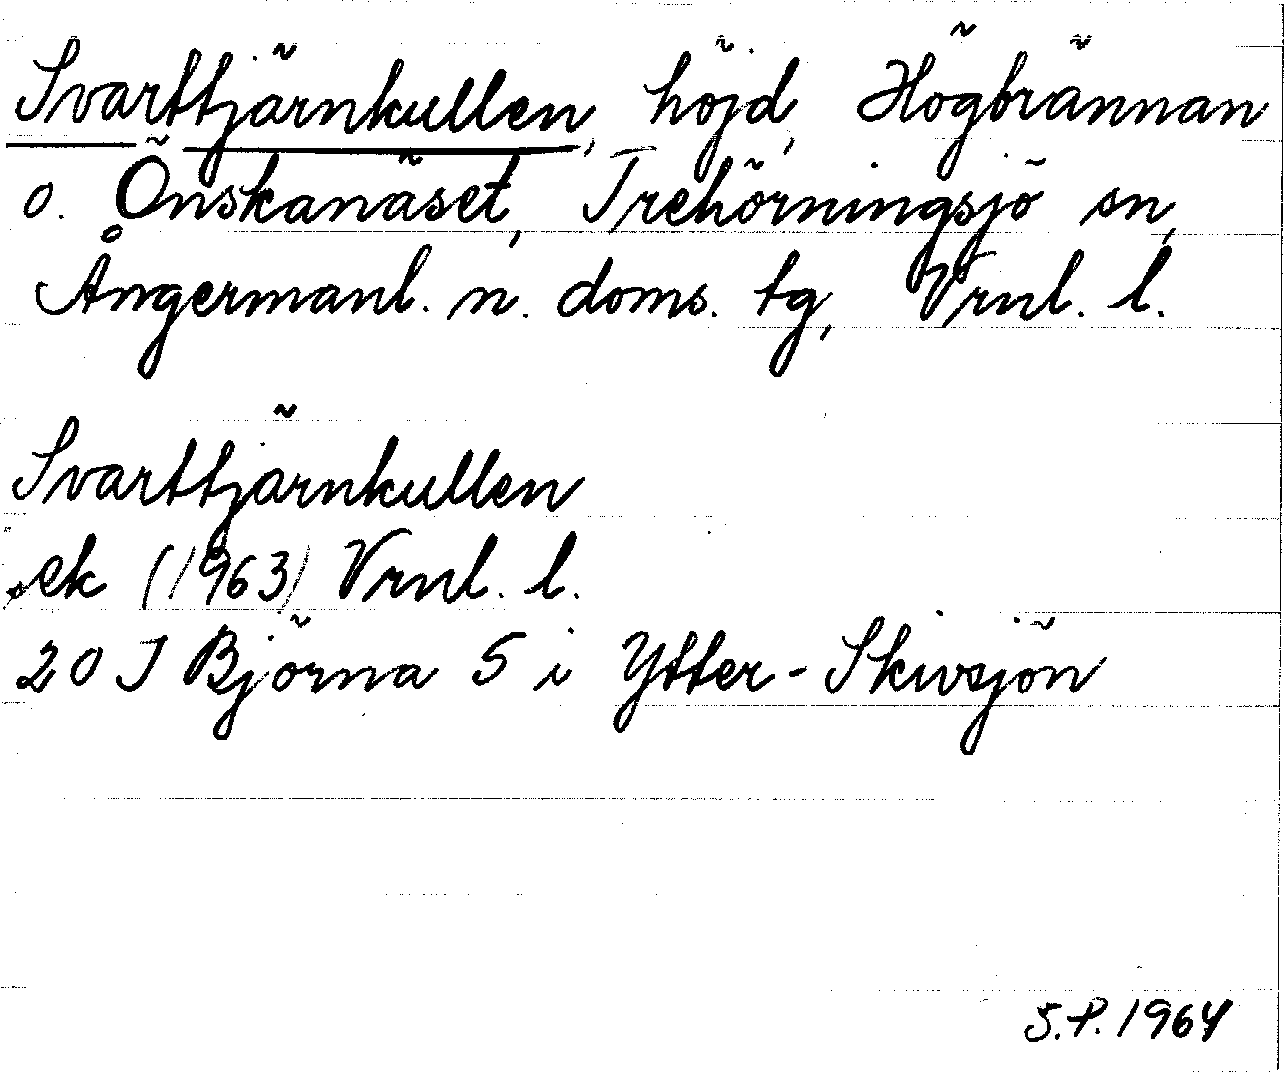 Svarttjärnkullen, höjd, Högbrännan
o. Önskanäset, Trehörningsjö sn,
Ångermanl. n. doms. tg, Vrnl. l.
Svarttjärnkullen
ek (1963) Vrnl. l.
20 J Björna 5 i Ytter-Skivsjön
S.P. 1964